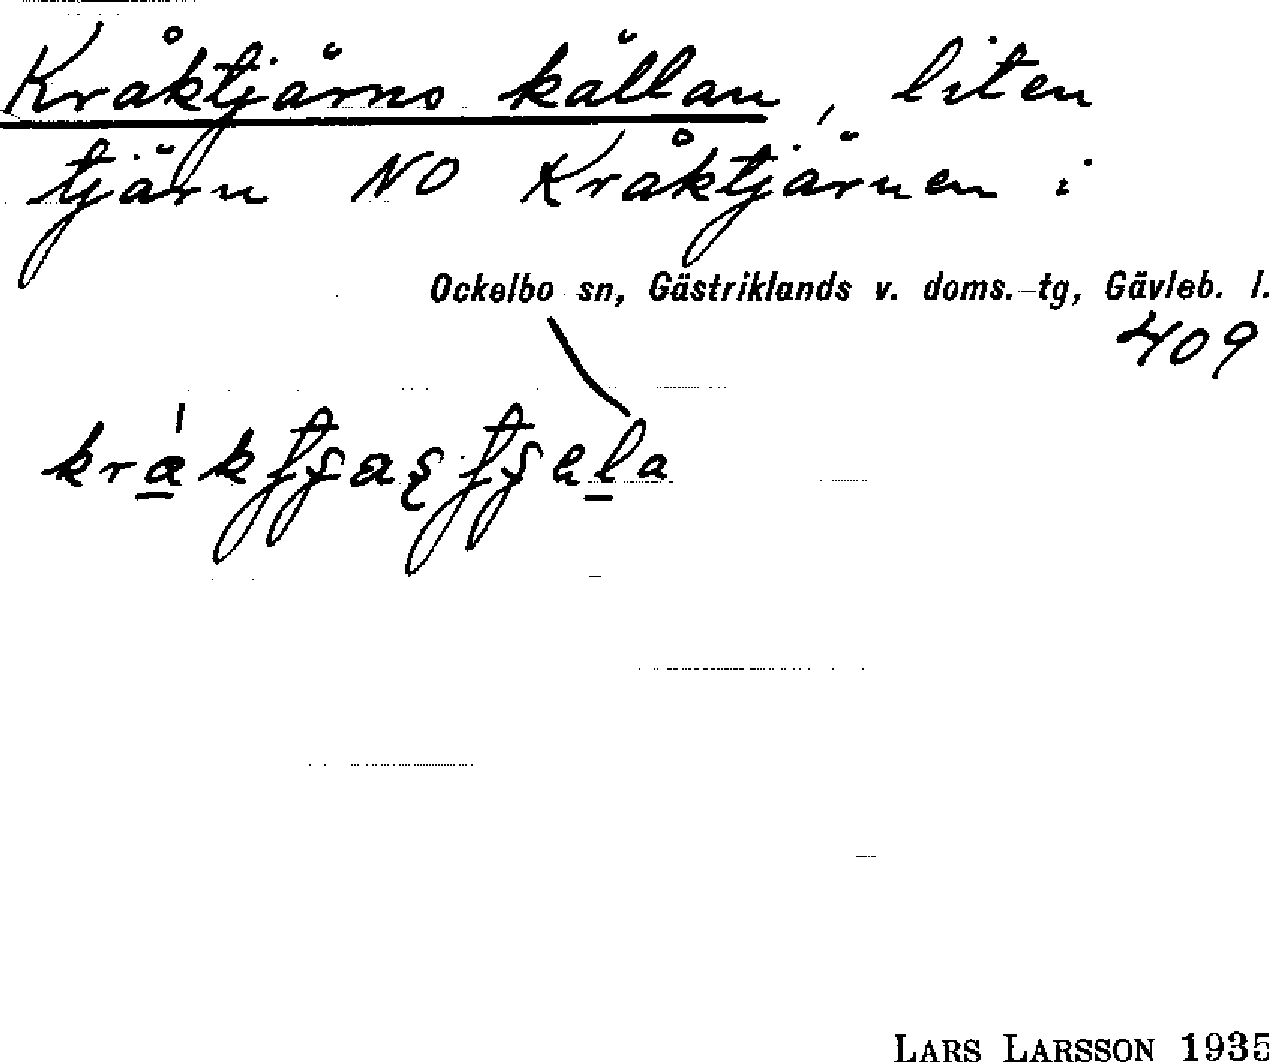 Kråktjärns källan, liten
tjärn NO Kråktjärnen i
Ockelbo sn, Gästriklands v. doms.-tg, Gävleb. l.
409
LARS LARSSON 1935